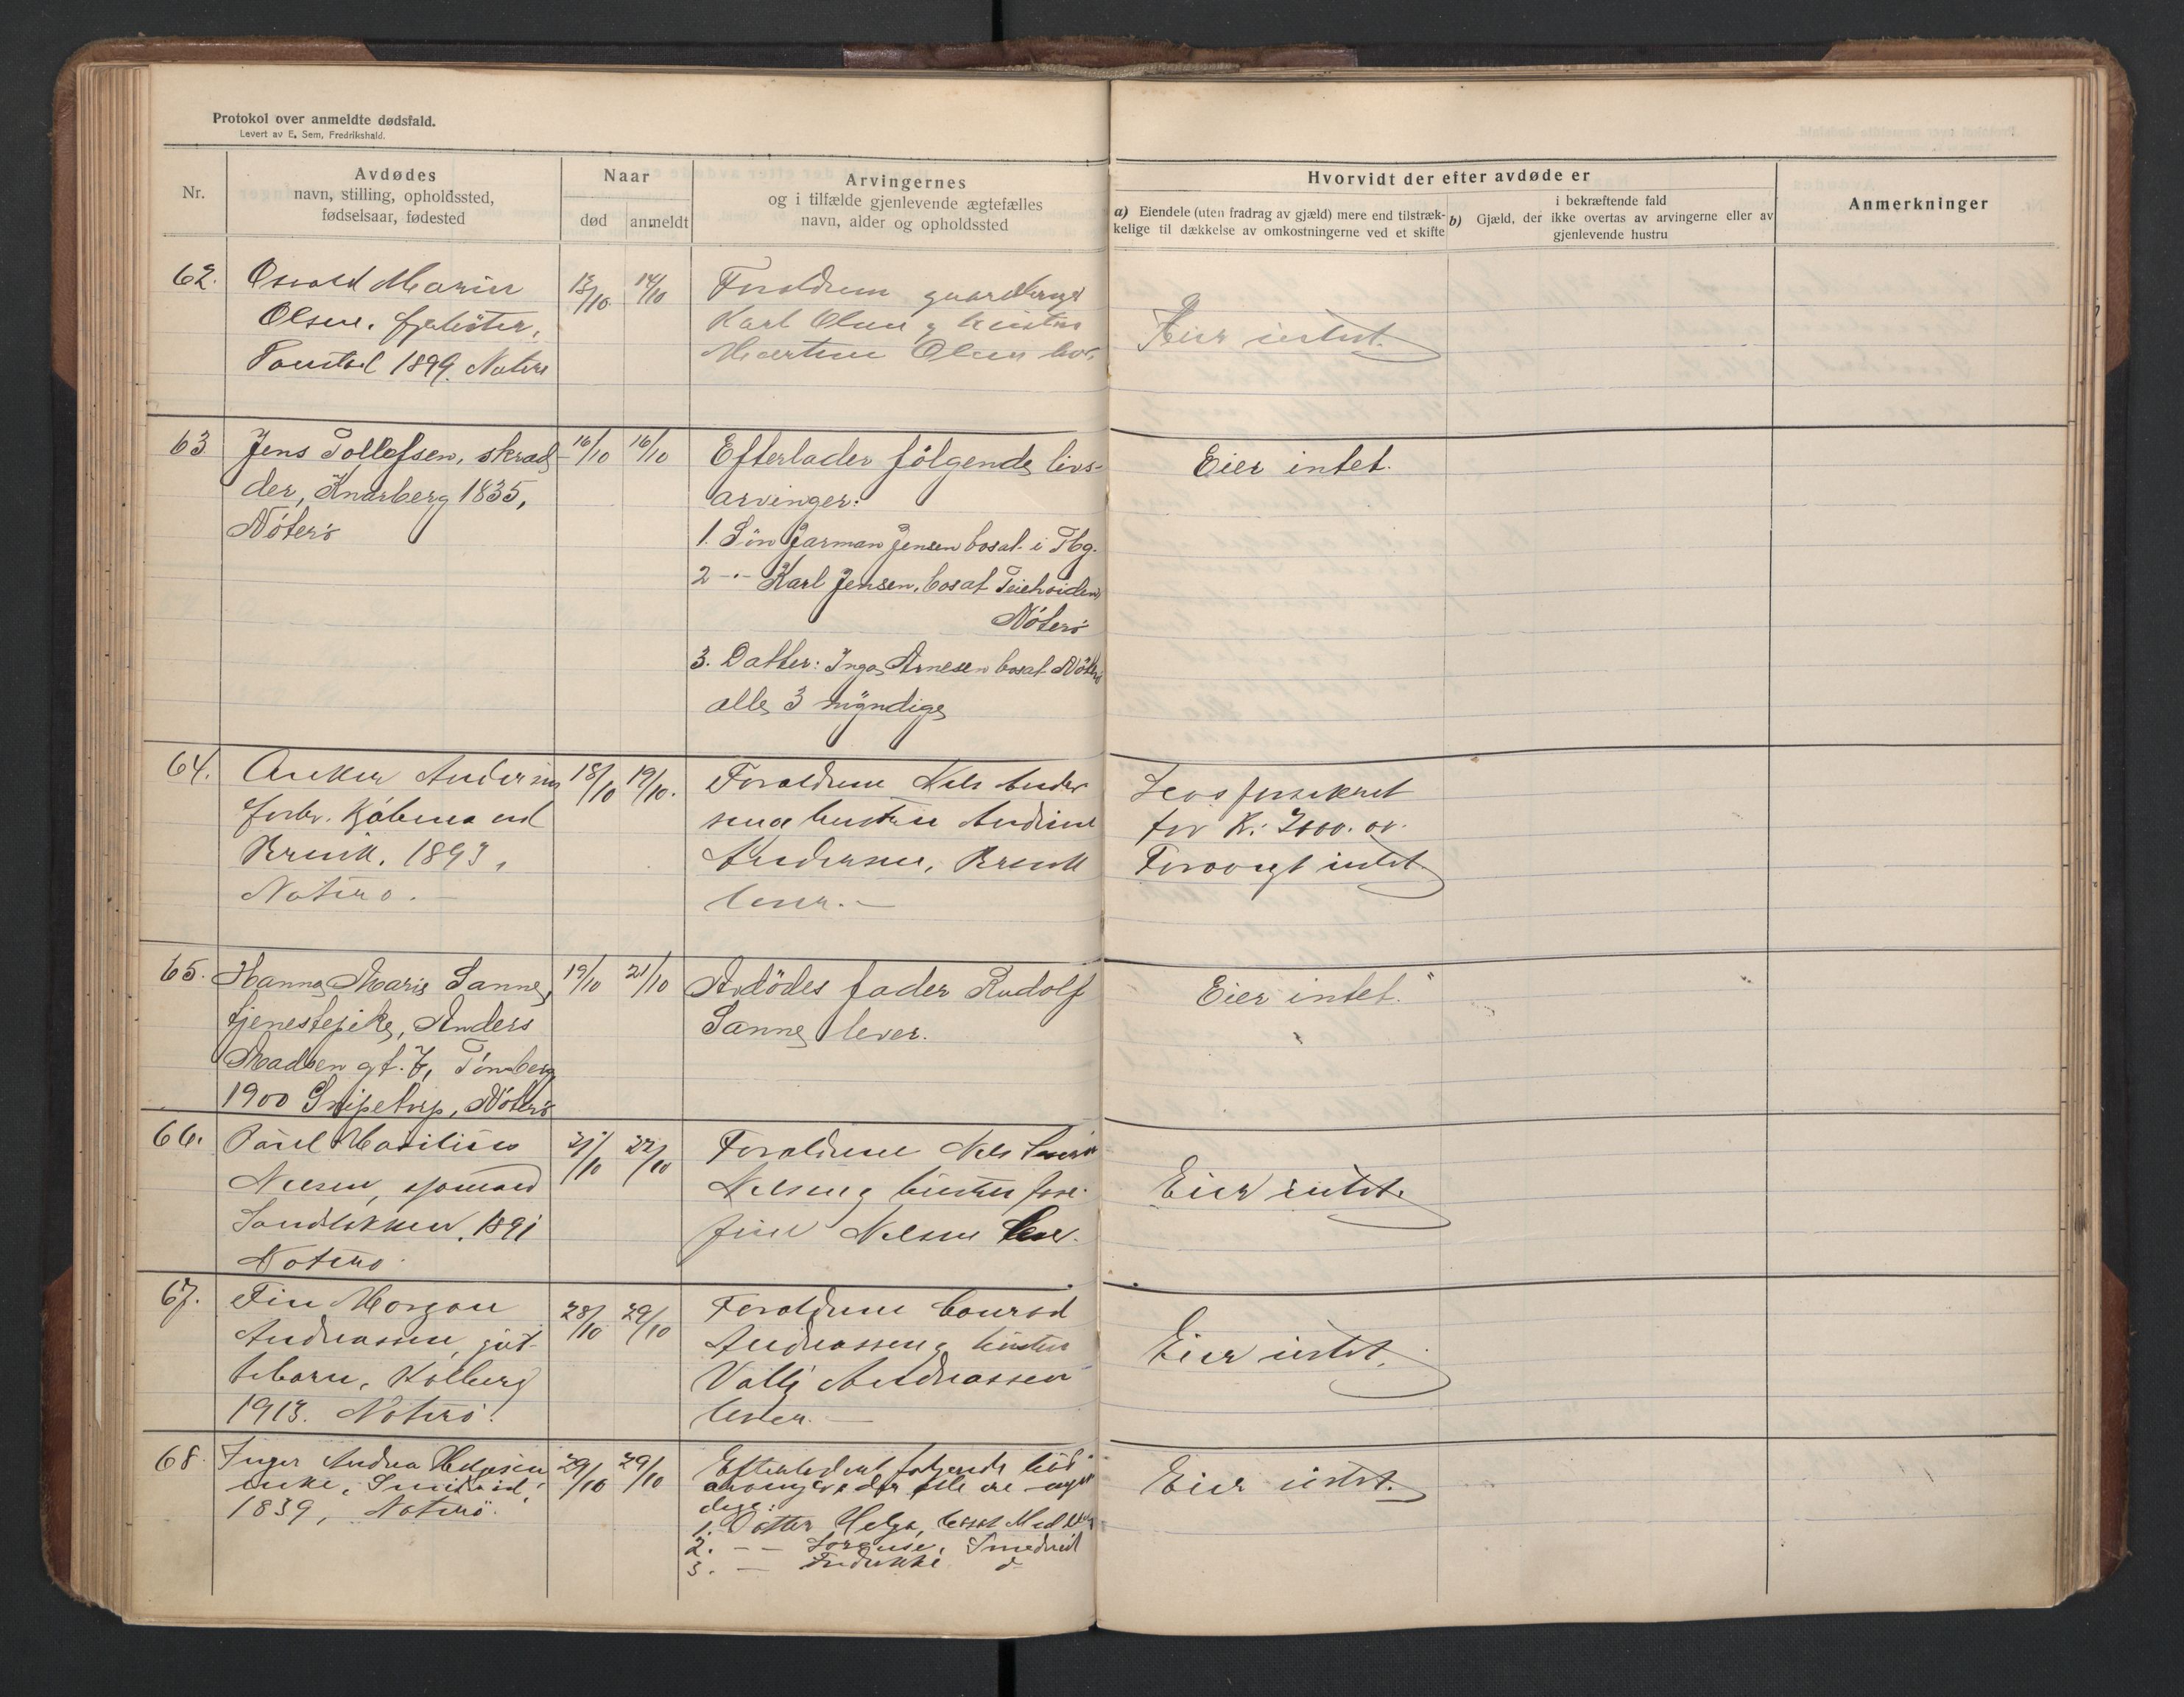 Protokol over anmeldte dødsfald.
Levert av E. Sem, Fredrikshald.
Nr.
Avdødes
navn, stilling, opholdssted,
fødselsaar, fødested
Naar
død
anmeldt
Arvingernes
og i tilfælde gjenlevende ægtefælles
navn, alder og opholdssted
Hvorvidt der efter avdøde er
a) Eiendele (uten fradrag av gjæld) mere end tilstræk-
kelige til dækkelse av omkostningerne ved et skifte
b) Gjæld, der
i bekræftende fald
ikke overtas av arvingerne eller av
gjenlevende hustru
Anmerkninger
62.
Osvald Marin
Olsen,
1899. Nøterø
13/10
14/10
Forældrene gaardbruger
Karl Olsen og hustru
Martine Olsen
Eier intet.
63
Jens Tollefsen, skræd
der, Knarberg 1835,
Nöterö
16/10
16/10
Efterlader fölgende livs-
arvinger:
1. Sön Jarman Jensen bosat i Tbg.
2 -"- Karl Jensen, bosat Teiehöiden
Nöterö
3. Datter: Inga Arnesen bosat Nöterö
alle 3 myndige
Eier intet.
64.
Anker Andersen
forhv. Kjøbmand
Brevik, 1893,
Nøterø.
18/10
19/10.
Forældrene Nils Ander
sen og hustru Andrine
Andersen, Brevik
lever.
Livsforsikret
for Kr. 2000.00.
Forøvrigt intet.
65.
Hanna Marie Sanne,
tjenestepike, Anders
Madsen gt. 7, Tönsberg
1900 Snipetorp, Nöterö
19/10
21/10
Avdödes fader Rudolf
Sanne lever.
Eier intet.
66.
Paul Marilius
Nilsen, sjømand
Sandbakken, 1891
Nøterø.
21/10
22/10
Forældrene Nils
Nilsen og hustru Jose-
fine Nilsen lever.
Eier intet.
67.
Fin Morgan
Andreassen,
Kolberg
1913. Nøterö.
28/10
29/10
Forældrene Conrad
Andreassen og hustru
Valli Andreassen
lever.
Eier intet.
68.
Inger Andrea Helgesen
enke, Smidsrød,
1839, Nøterö.
29/10
29/10
Efterladt følgende livs
arvinger der alle er myn
dige:
1. Datter Helga, bosat
2. -- Smidsrød
3. — Fredrikke do
Eier intet.